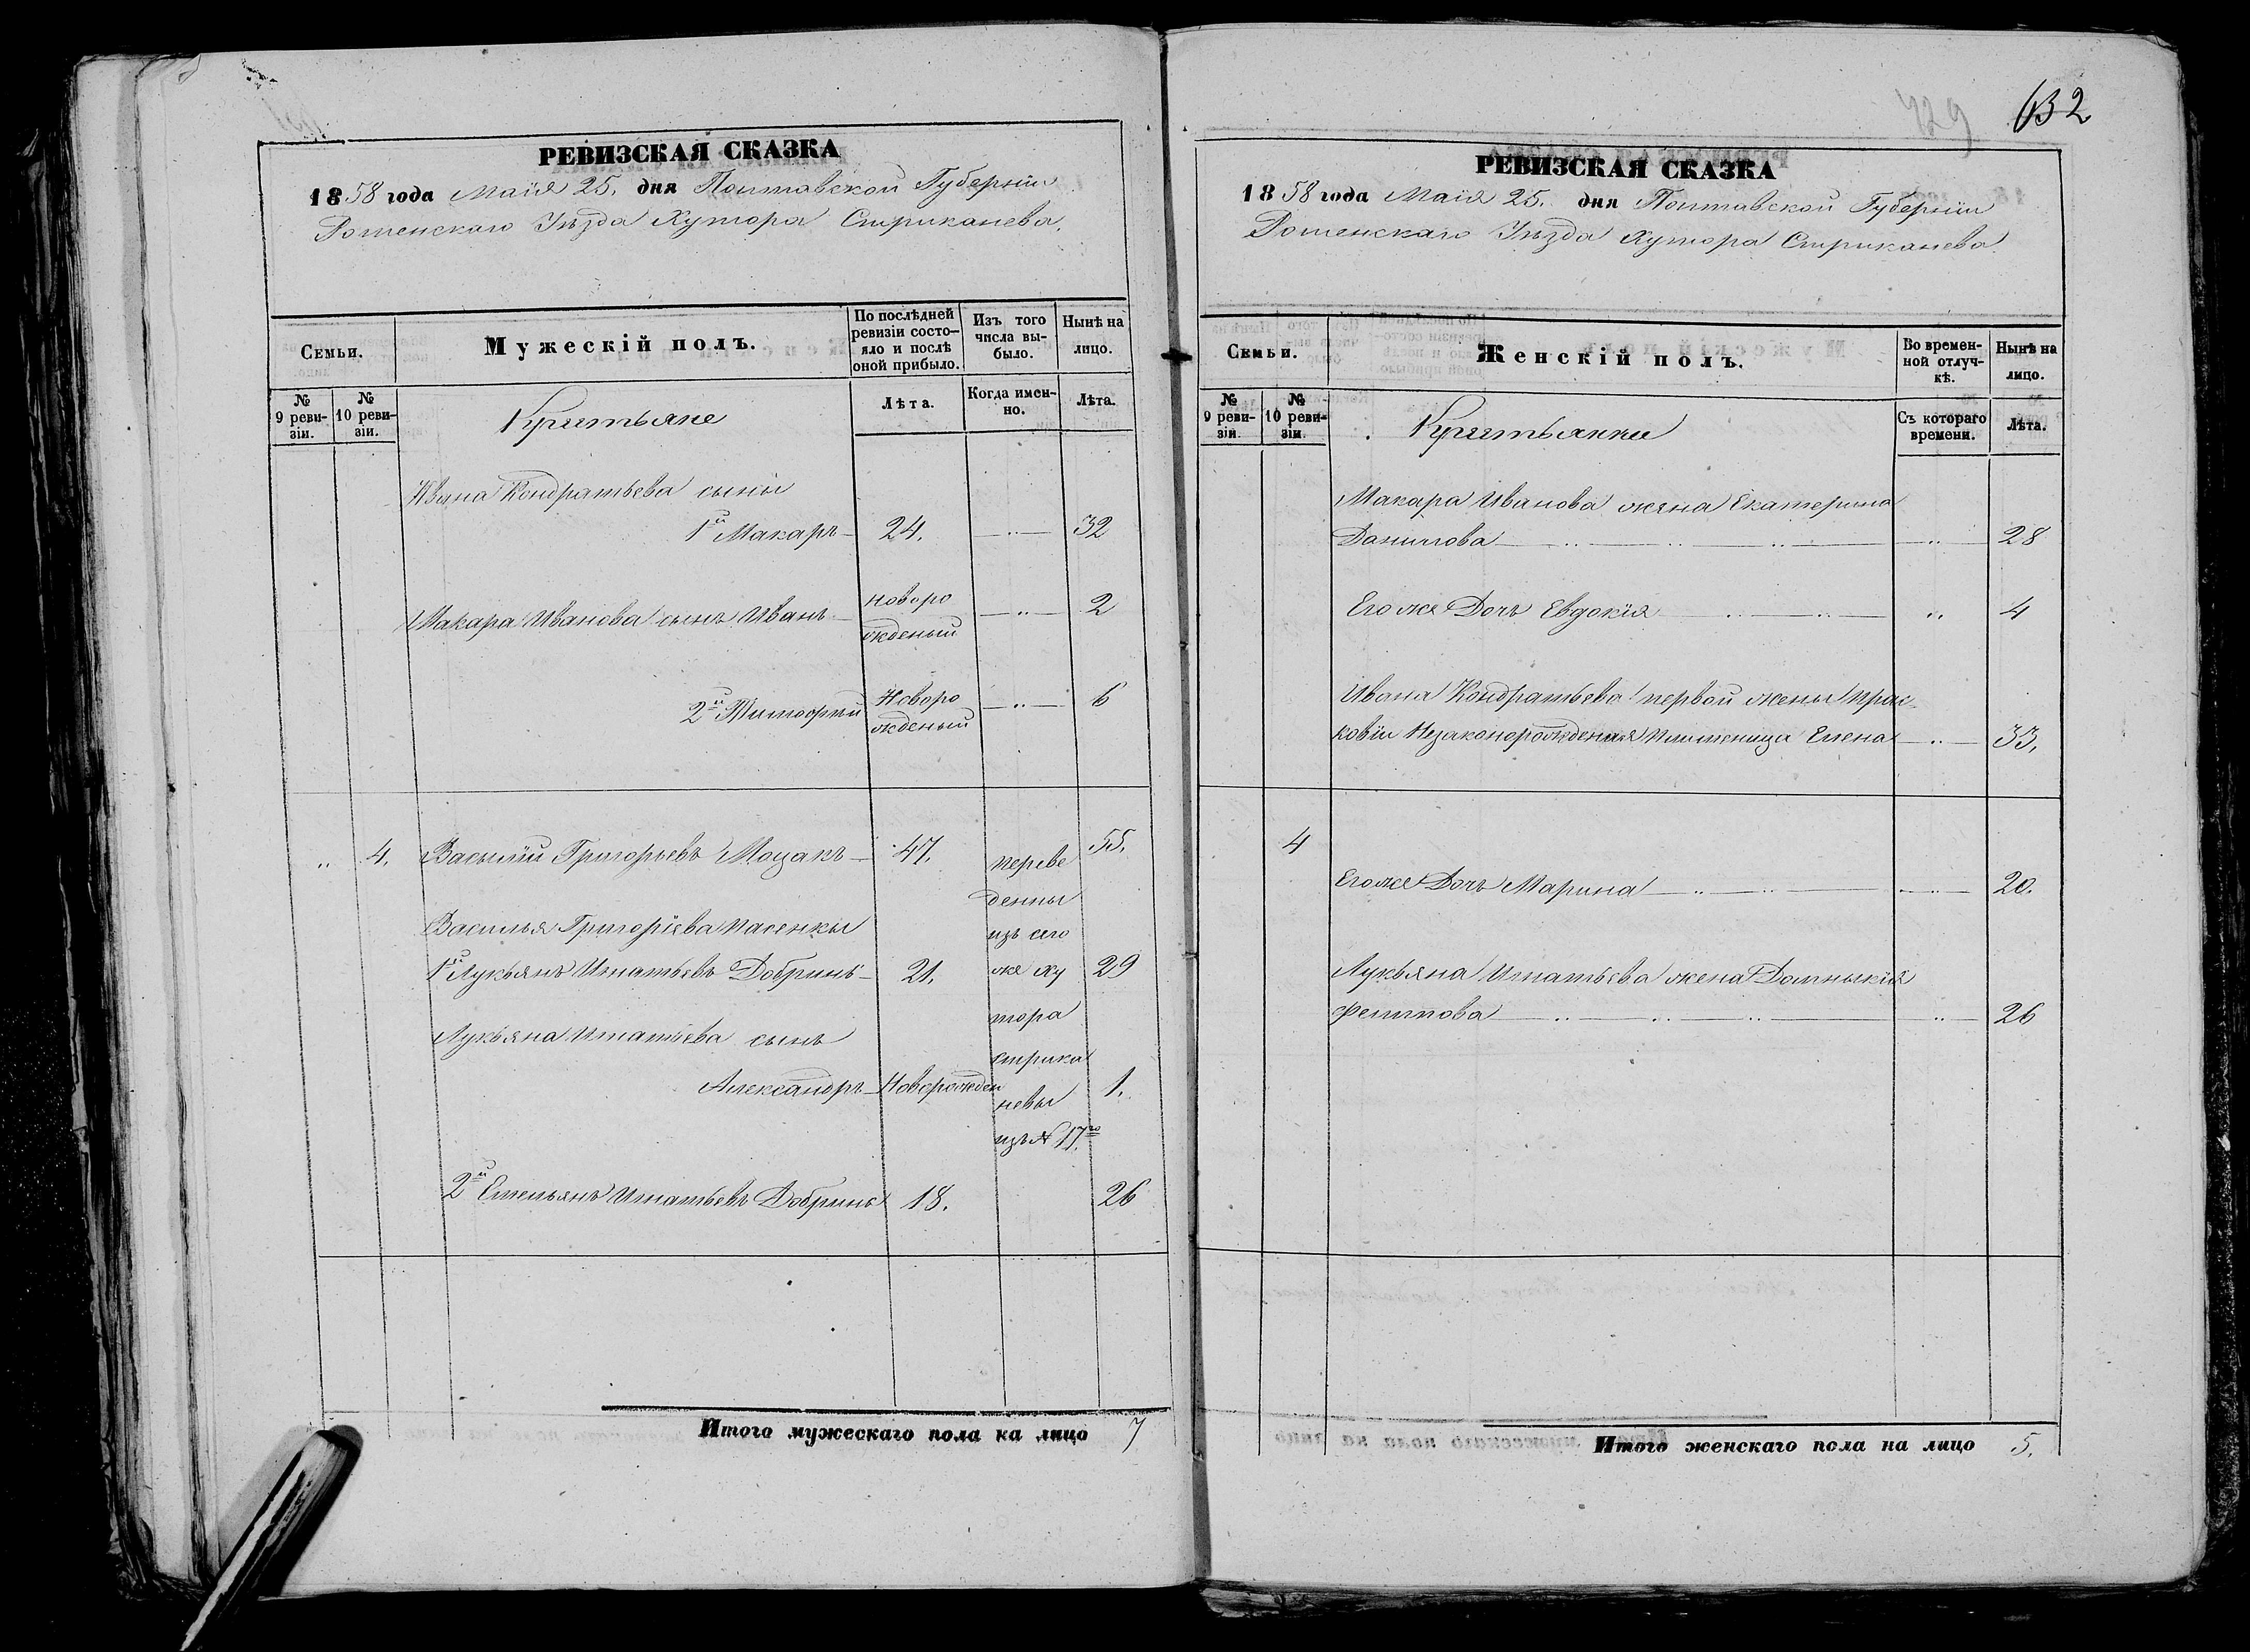 РЕВИЗСКАЯ СКАЗКА
1858 года Маія 25. дня Полтавской Губерніи
Роменскаго Уѣзда Хутора Стриканева.
Семьи.
Мужескій полъ.
По послѣдней ревизіи состо-
яло и послѣ оной прибыло.
Изъ того числа вы-
было.
Нынѣ на лицо.
№ 9 реви-
зіи.
№ 10 реви-
зіи.
Крестьяне
Лѣта.
Когда имен-
но.
Лѣта.
Ивана Кондратьева сыны
1й Макаръ 24. 32
Макара Иванова сынъ Иванъ новоро
жденый 2
2й Тимофей Новоро
жденый 6
4. Василій Григорьевъ Моцакъ 47. 55.
переве
денны
изъ сего
же ху
тора
стрика
невы
изъ № 17го
Василья Григоріева пасенкы
1й Лукьянъ Игнатьевъ Добринь 21. 29
Лукьяна Игнатьева сынъ
Александръ Новорожден 1.
2й Емельянъ Игнатьевъ Добринь 18. 26
Итого мужескаго пола на лицо 7
632
729
РЕВИЗСКАЯ СКАЗКА
1858 года Маія 25. дня Полтавской Губерніи
Роменскаго Уѣзда Хутора Стриканева
Семьи.
Женскій полъ.
Во времен-
ной отлуч-
кѣ.
Нынѣ на лицо.
№ 9 реви-
зіи.
№ 10 реви-
зіи.
Крестьянки
Съ котораго времени.
Лѣта.
Макара Иванова жена Екатерина
Данилова 28
Его же Дочь Евдокія 4
Ивана Кондратьева первой жены Прас-
ковіи Незаконорожденая Племеница Елена 33.
4
Его же Дочь Марина 20.
Лукьяна Игнатьева жена Домникія
Филипова 26
Итого женскаго пола на лицо 5.